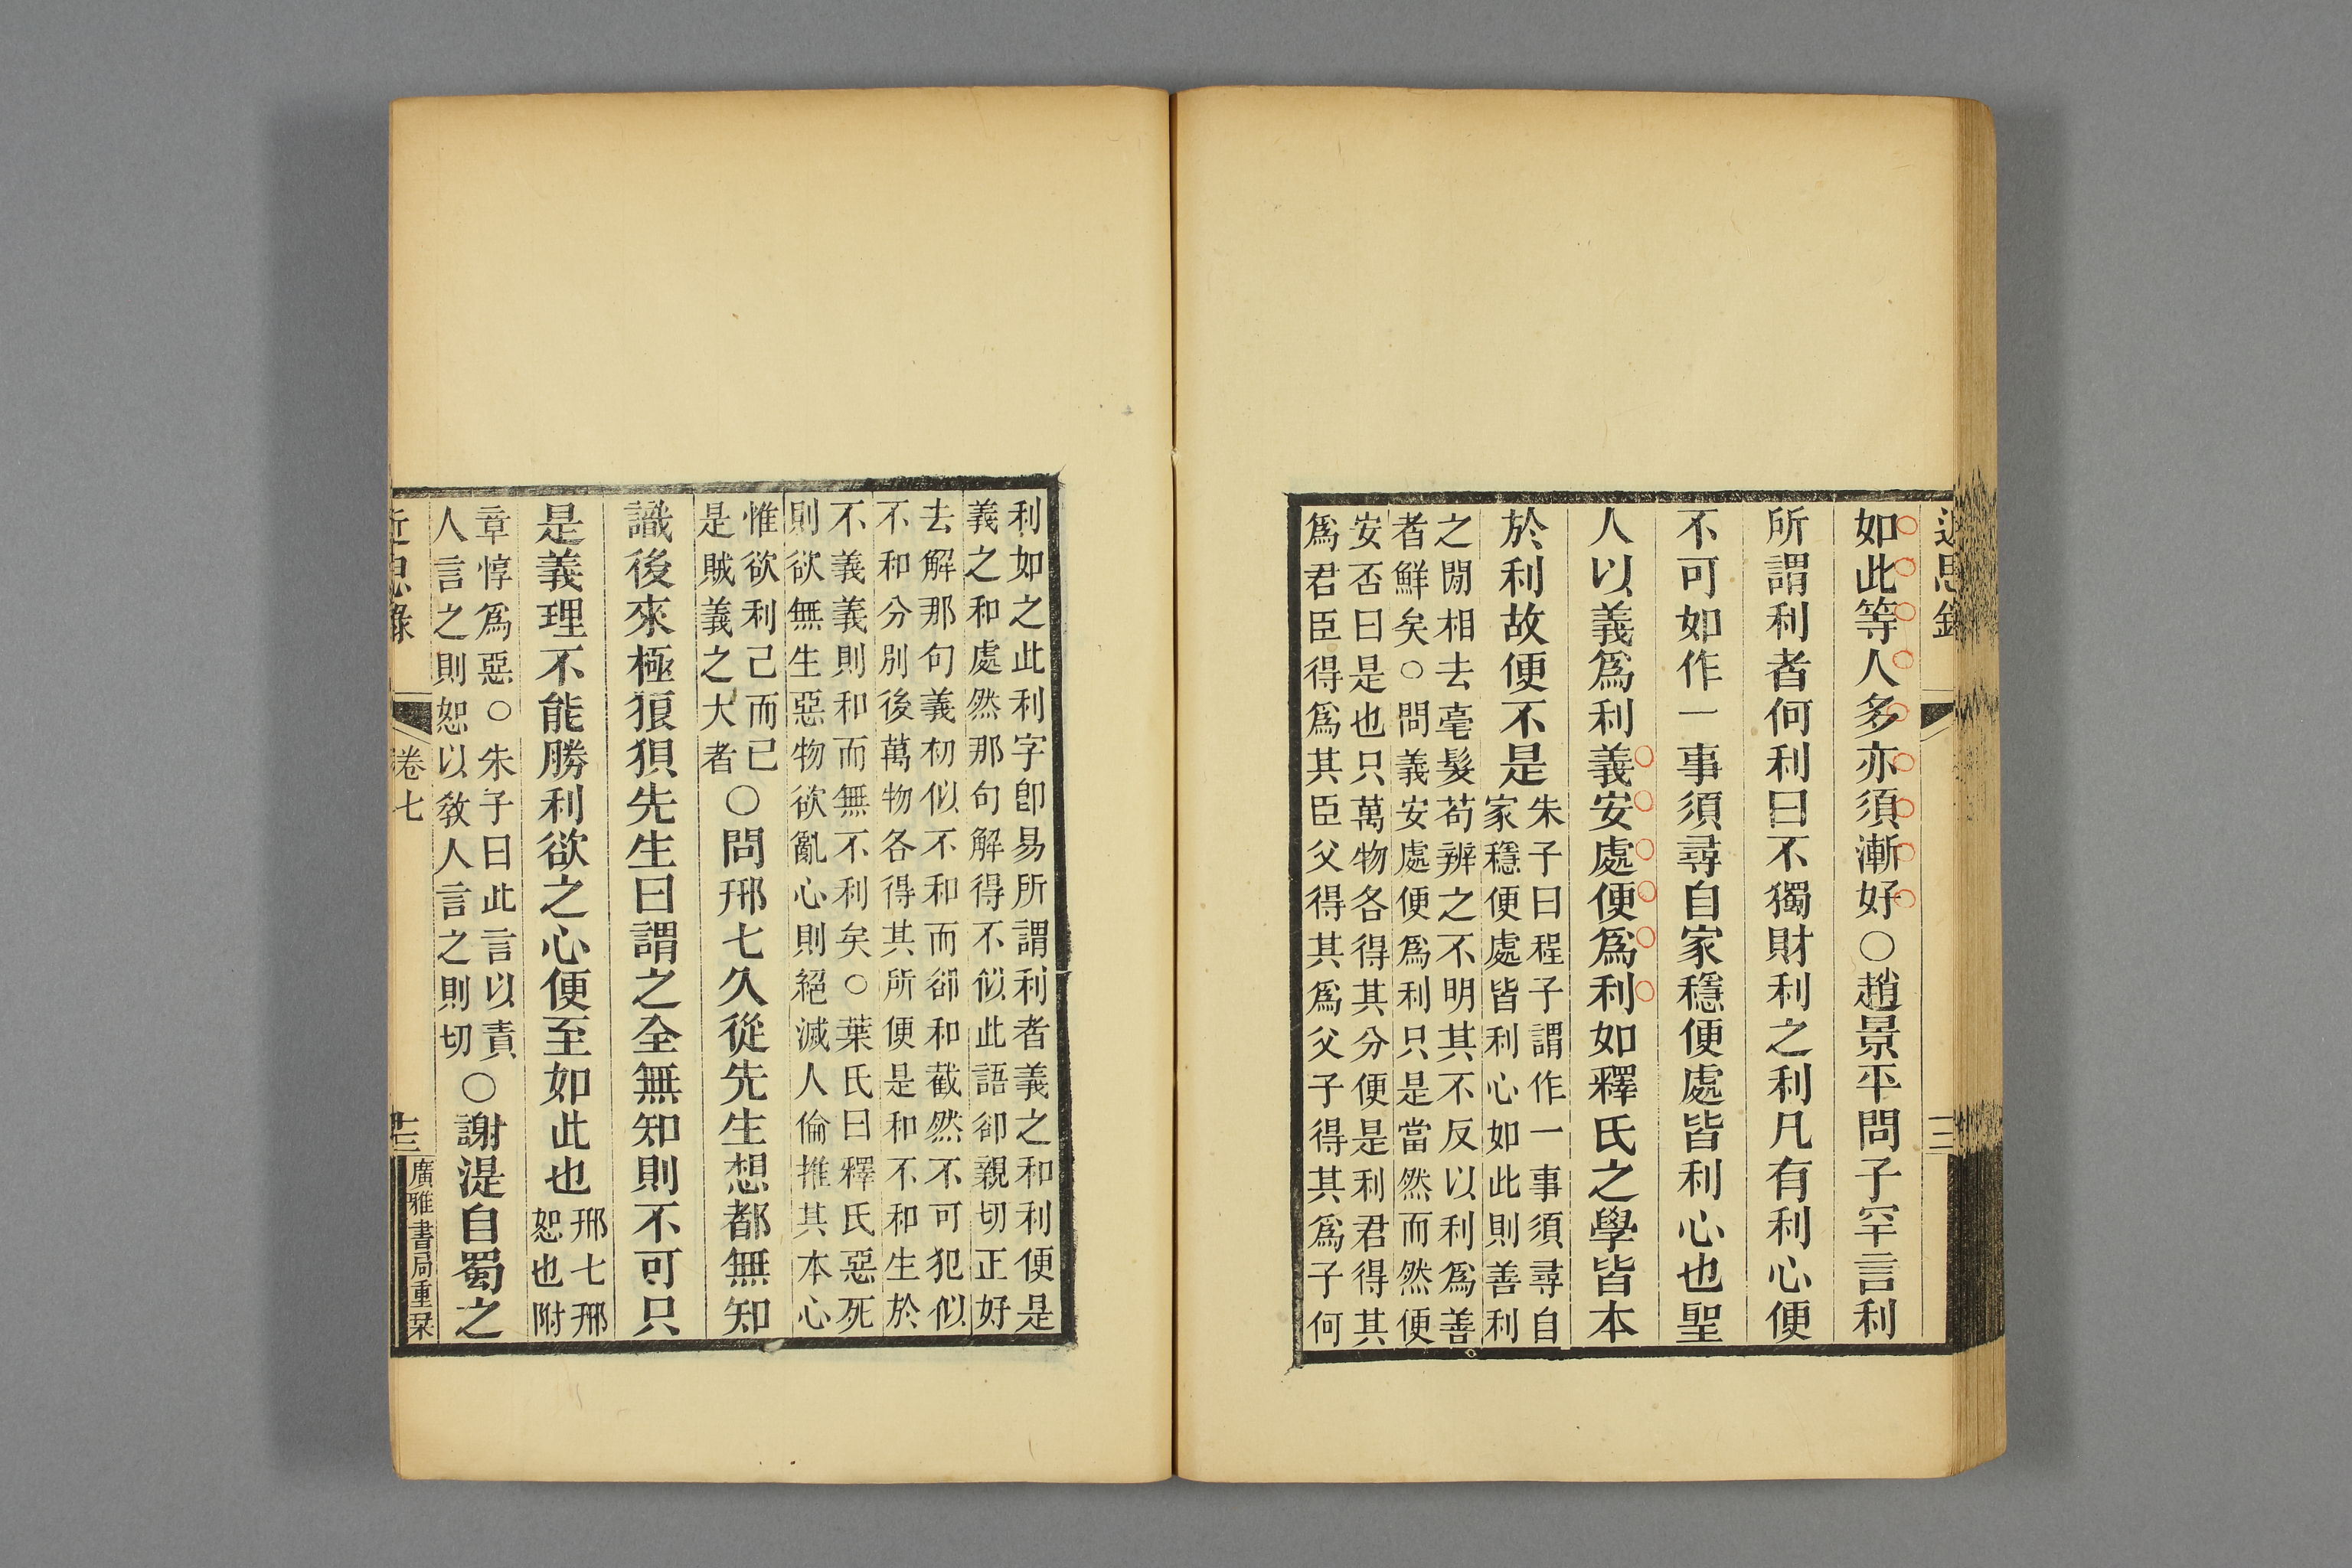 如此等人多亦須漸好○趙景平問子罕言利
所謂利者何利曰不獨財利之利凡有利心便
不可如作一事須尋自家穩便處皆利心也聖
人以義爲利義安處便爲利如釋氏之學皆本
於利故便不是
朱子曰程子謂作一事須尋自
家穩便處皆利心如此則善利
之閒相去毫髮苟辨之不明其不反以利爲善
者鮮矣○問義安處便爲利只是當然而然便
安否曰是也只萬物各得其分便是利君得其
爲君臣得爲其臣父得其爲父子得其爲子何
利如之此利字卽易所謂利者義之和利便是
義之和處然那句解得不似此語卻親切正好
去解那句義初似不和而卻和截然不可犯似
不和分別後萬物各得其所便是和不和生於
不義義則和而無不利矣○葉氏曰釋氏惡死
則欲無生惡物欲亂心則絕滅人倫推其本心
惟欲利己而已
是賊義之大者
○問邢七久從先生想都無知
識後來極狼狽先生曰謂之全無知則不可只
是義理不能勝利欲之心便至如此也
邢七邢
恕也附
章惇爲惡○朱子曰此言以責
人言之則恕以敎人言之則切
○謝湜自蜀之
近思錄
卷七
十三
廣雅書局重栞